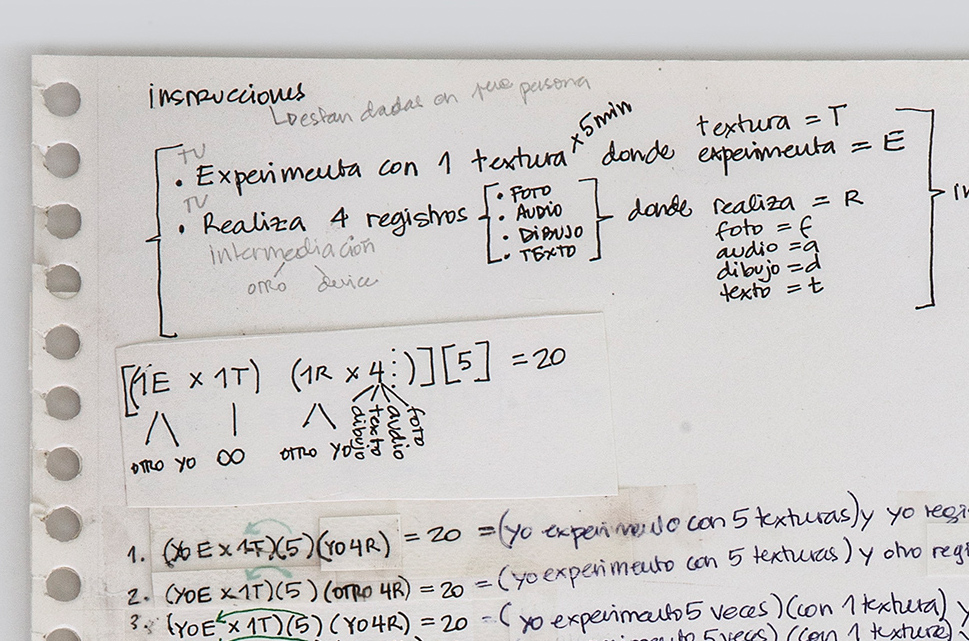 instrucciones
↳ estan dadas en persona
TU
• Experimenta con 1 textura x 5min donde experimenta = E
textura = T
TU
• Realiza 4 registros [• FOTO • AUDIO • DIBUJO • TEXTO] donde realiza = R
foto = f
audio = a
dibujo = d
texto = t
intermediación
otro device
[(1E x 1T) (1R x 4⋮)][5] = 20
OTRO YO ∞ OTRO YO dibujo texto audio foto
1. (YO E x 1T)(5)(YO 4R) = 20 = (yo experimento con 5 texturas) y yo regi
2. (YOE x 1T)(5)(OTRO 4R) = 20 = (yo experimento con 5 texturas) y otro regi
3. (YOE x 1T)(5)(YO4R) = 20 = (yo experimento 5 veces)(con 1 textura) y
5 veces)(con 1 textura)